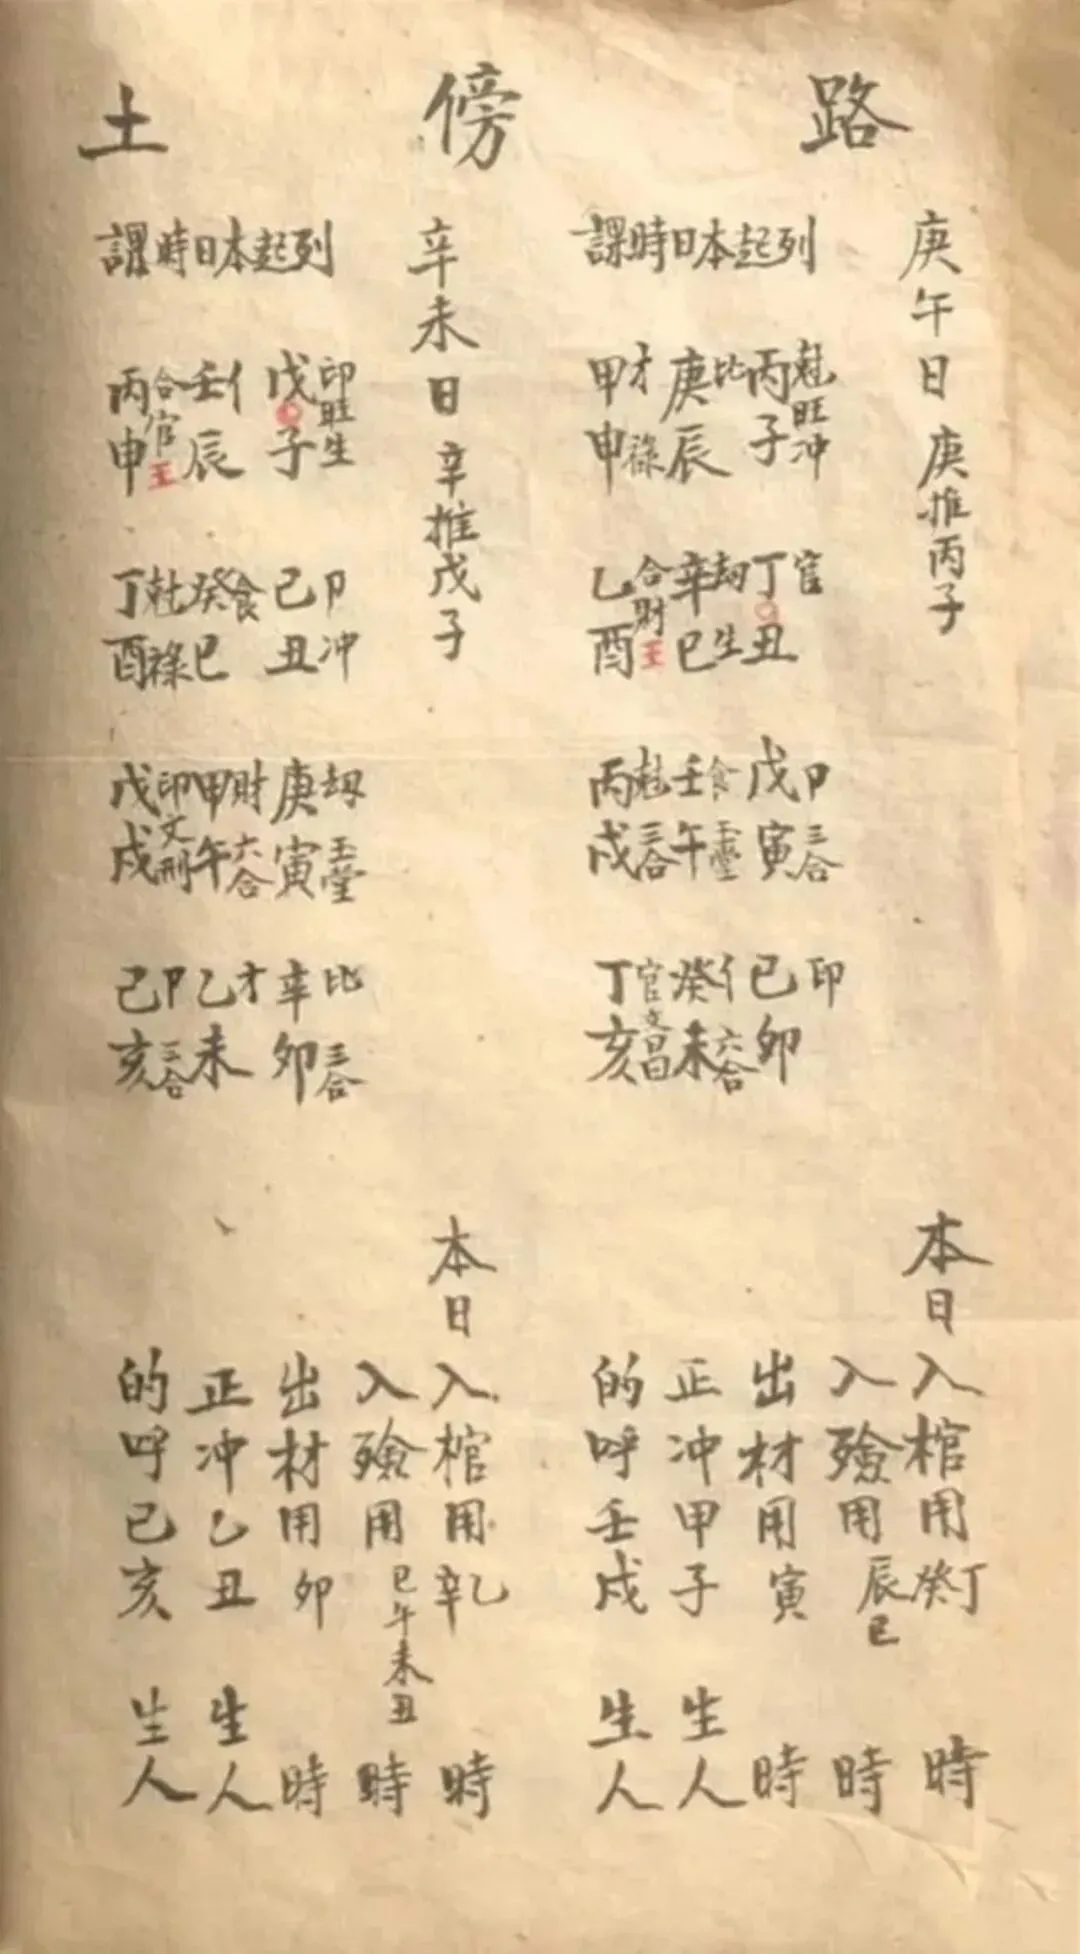 路傍土
庚午日 庚推丙子
列起本日時課
丙子 旺冲
庚辰 比
甲申 才 祿
丁丑 官
辛巳 劫 生
乙酉 合財 王
戊寅 卩 三合
壬午 食
丙戌 三合
己卯 印
癸未 亻 六合
丁亥 官 文昌
本日
入棺用丁癸時
入殮用辰巳時
出材用寅時
正冲甲子生人
的呼壬戌生人
辛未日 辛推戊子
列起本日時課
戊子 印旺生
壬辰 亻
丙申 合官 王
己丑 卩 冲
癸巳 食
丁酉 祿
庚寅 刼 玉堂
甲午 財 六合
戊戌 印 文刑
辛卯 比 三合
乙未 才
己亥 卩 三合
本日
入棺用乙辛時
入殮用巳午未丑時
出材用卯時
正冲乙丑生人
的呼己亥生人